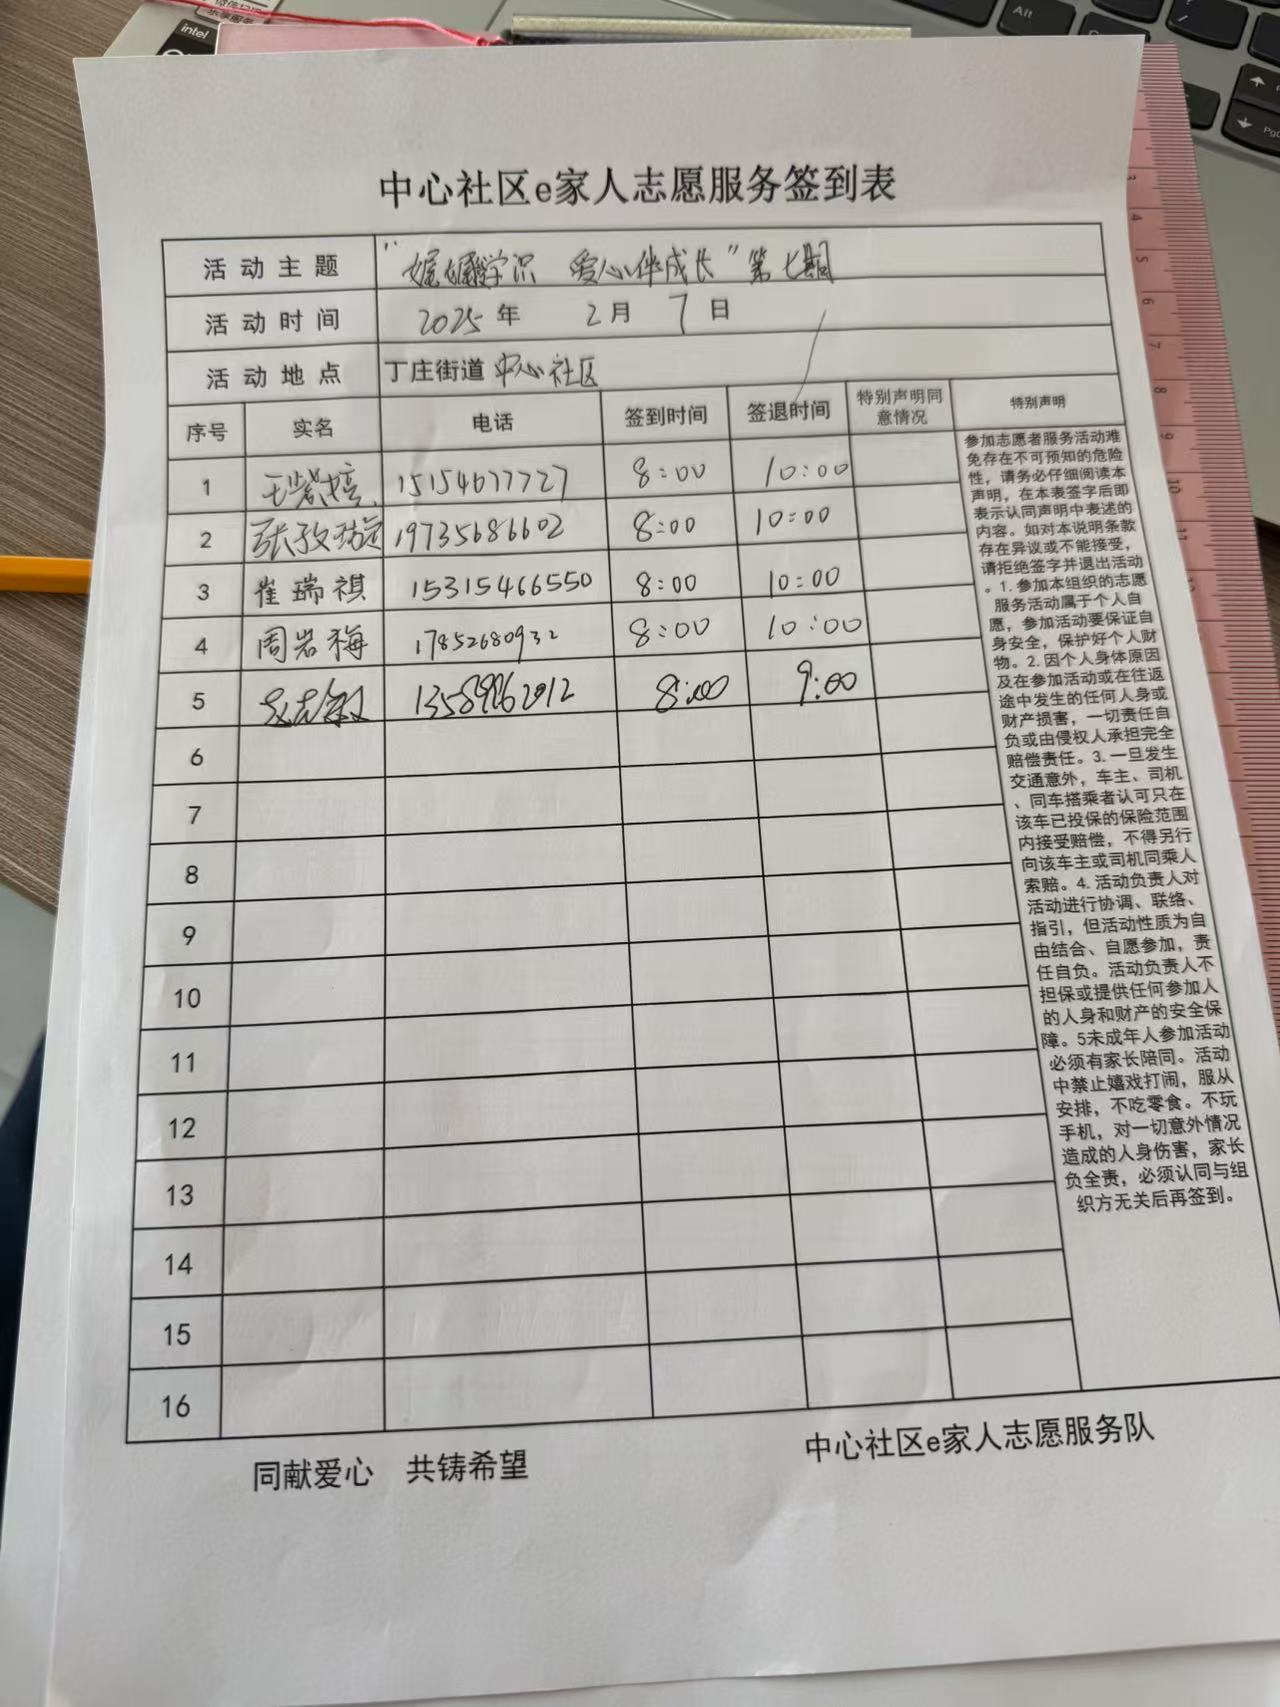 intel
Alt
中心社区e家人志愿服务签到表
活动主题 "娓娓学识 爱心伴成长"第七期
活动时间 2025年 2月 7日
活动地点 丁庄街道中心社区
序号 实名 电话 签到时间 签退时间 特别声明同意情况 特别声明
1 王紫培 15154677727 8:00 10:00
2 张孜璇 19735686602 8:00 10:00
3 崔瑞祺 15315466550 8:00 10:00
4 周岩梅 17852680932 8:00 10:00
5 13589962012 8:00 9:00
6
7
8
9
10
11
12
13
14
15
16
参加志愿者服务活动难
免存在不可预知的危险
性，请务必仔细阅读本
声明，在本表签字后即
表示认同声明中表述的
内容。如对本说明条款
存在异议或不能接受，
请拒绝签字并退出活动
。1.参加本组织的志愿
服务活动属于个人自
愿，参加活动要保证自
身安全，保护好个人财
物。2.因个人身体原因
及在参加活动或在往返
途中发生的任何人身或
财产损害，一切责任自
负或由侵权人承担完全
赔偿责任。3.一旦发生
交通意外，车主、司机
、同车搭乘者认可只在
该车已投保的保险范围
内接受赔偿，不得另行
向该车主或司机同乘人
索赔。4.活动负责人对
活动进行协调、联络、
指引，但活动性质为自
由结合、自愿参加，责
任自负。活动负责人不
担保或提供任何参加人
的人身和财产的安全保
障。5未成年人参加活动
必须有家长陪同。活动
中禁止嬉戏打闹，服从
安排，不吃零食。不玩
手机，对一切意外情况
造成的人身伤害，家长
负全责，必须认同与组
织方无关后再签到。
同献爱心 共铸希望
中心社区e家人志愿服务队